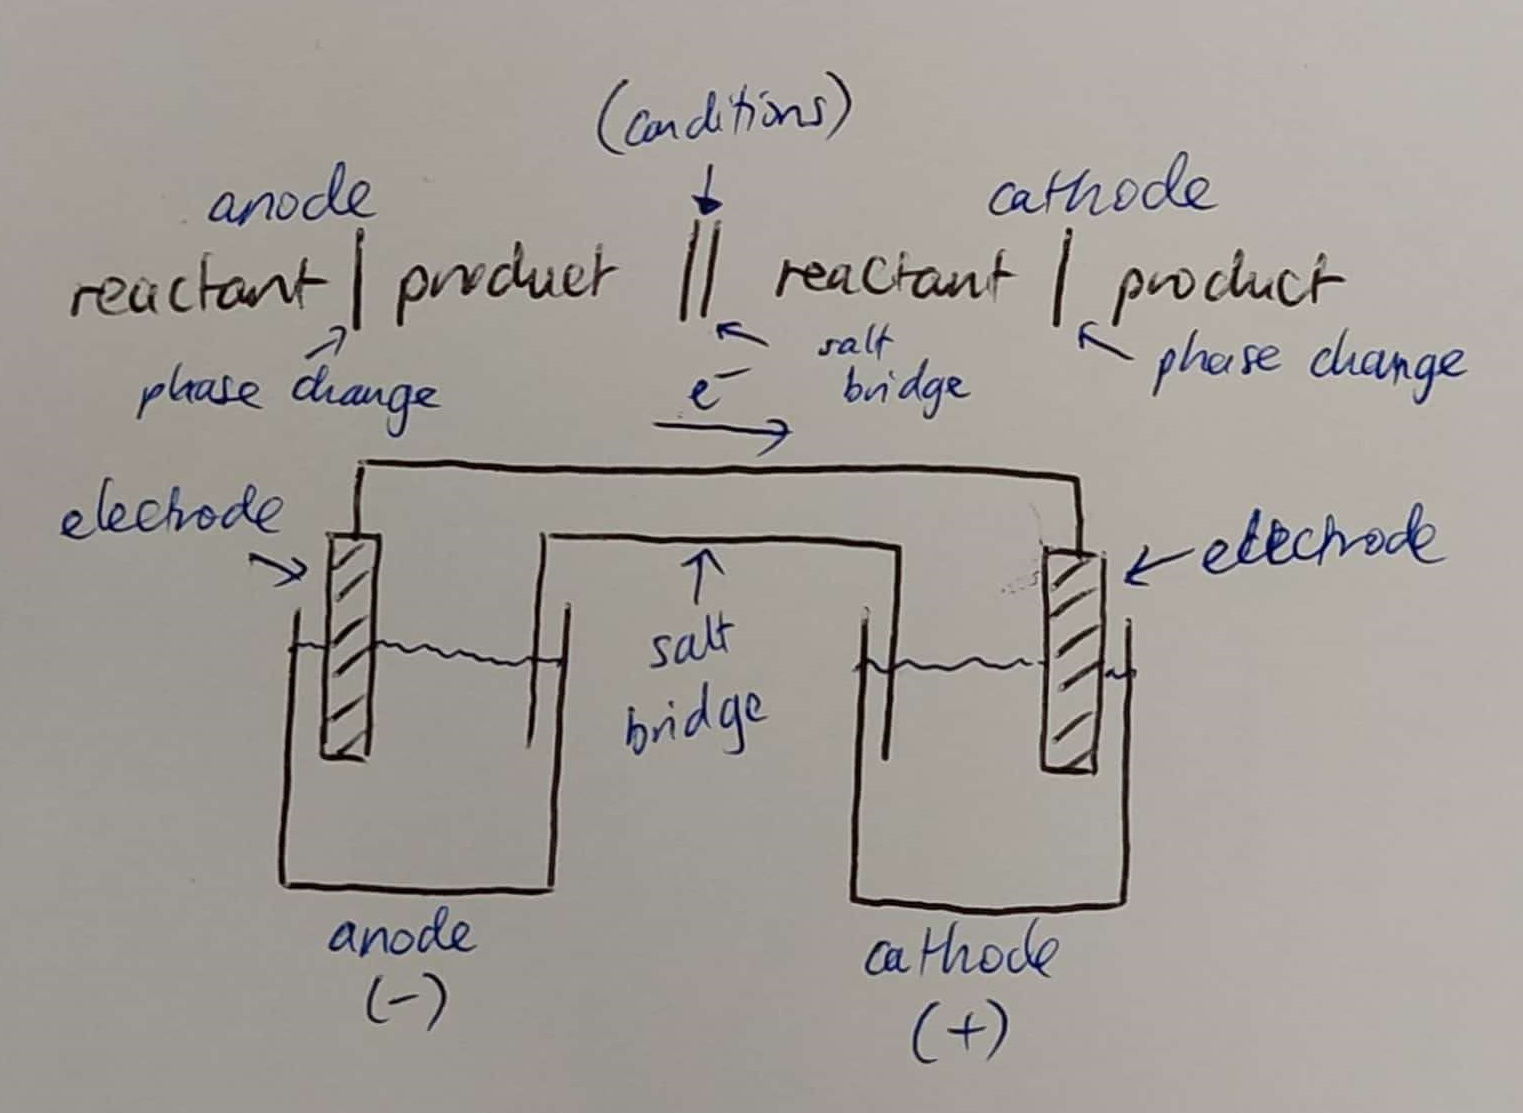 (conditions)
anode
cathode
reactant | product || reactant | product
phase change
e⁻
salt
bridge
phase change
electrode
electrode
salt
bridge
anode
(-)
cathode
(+)